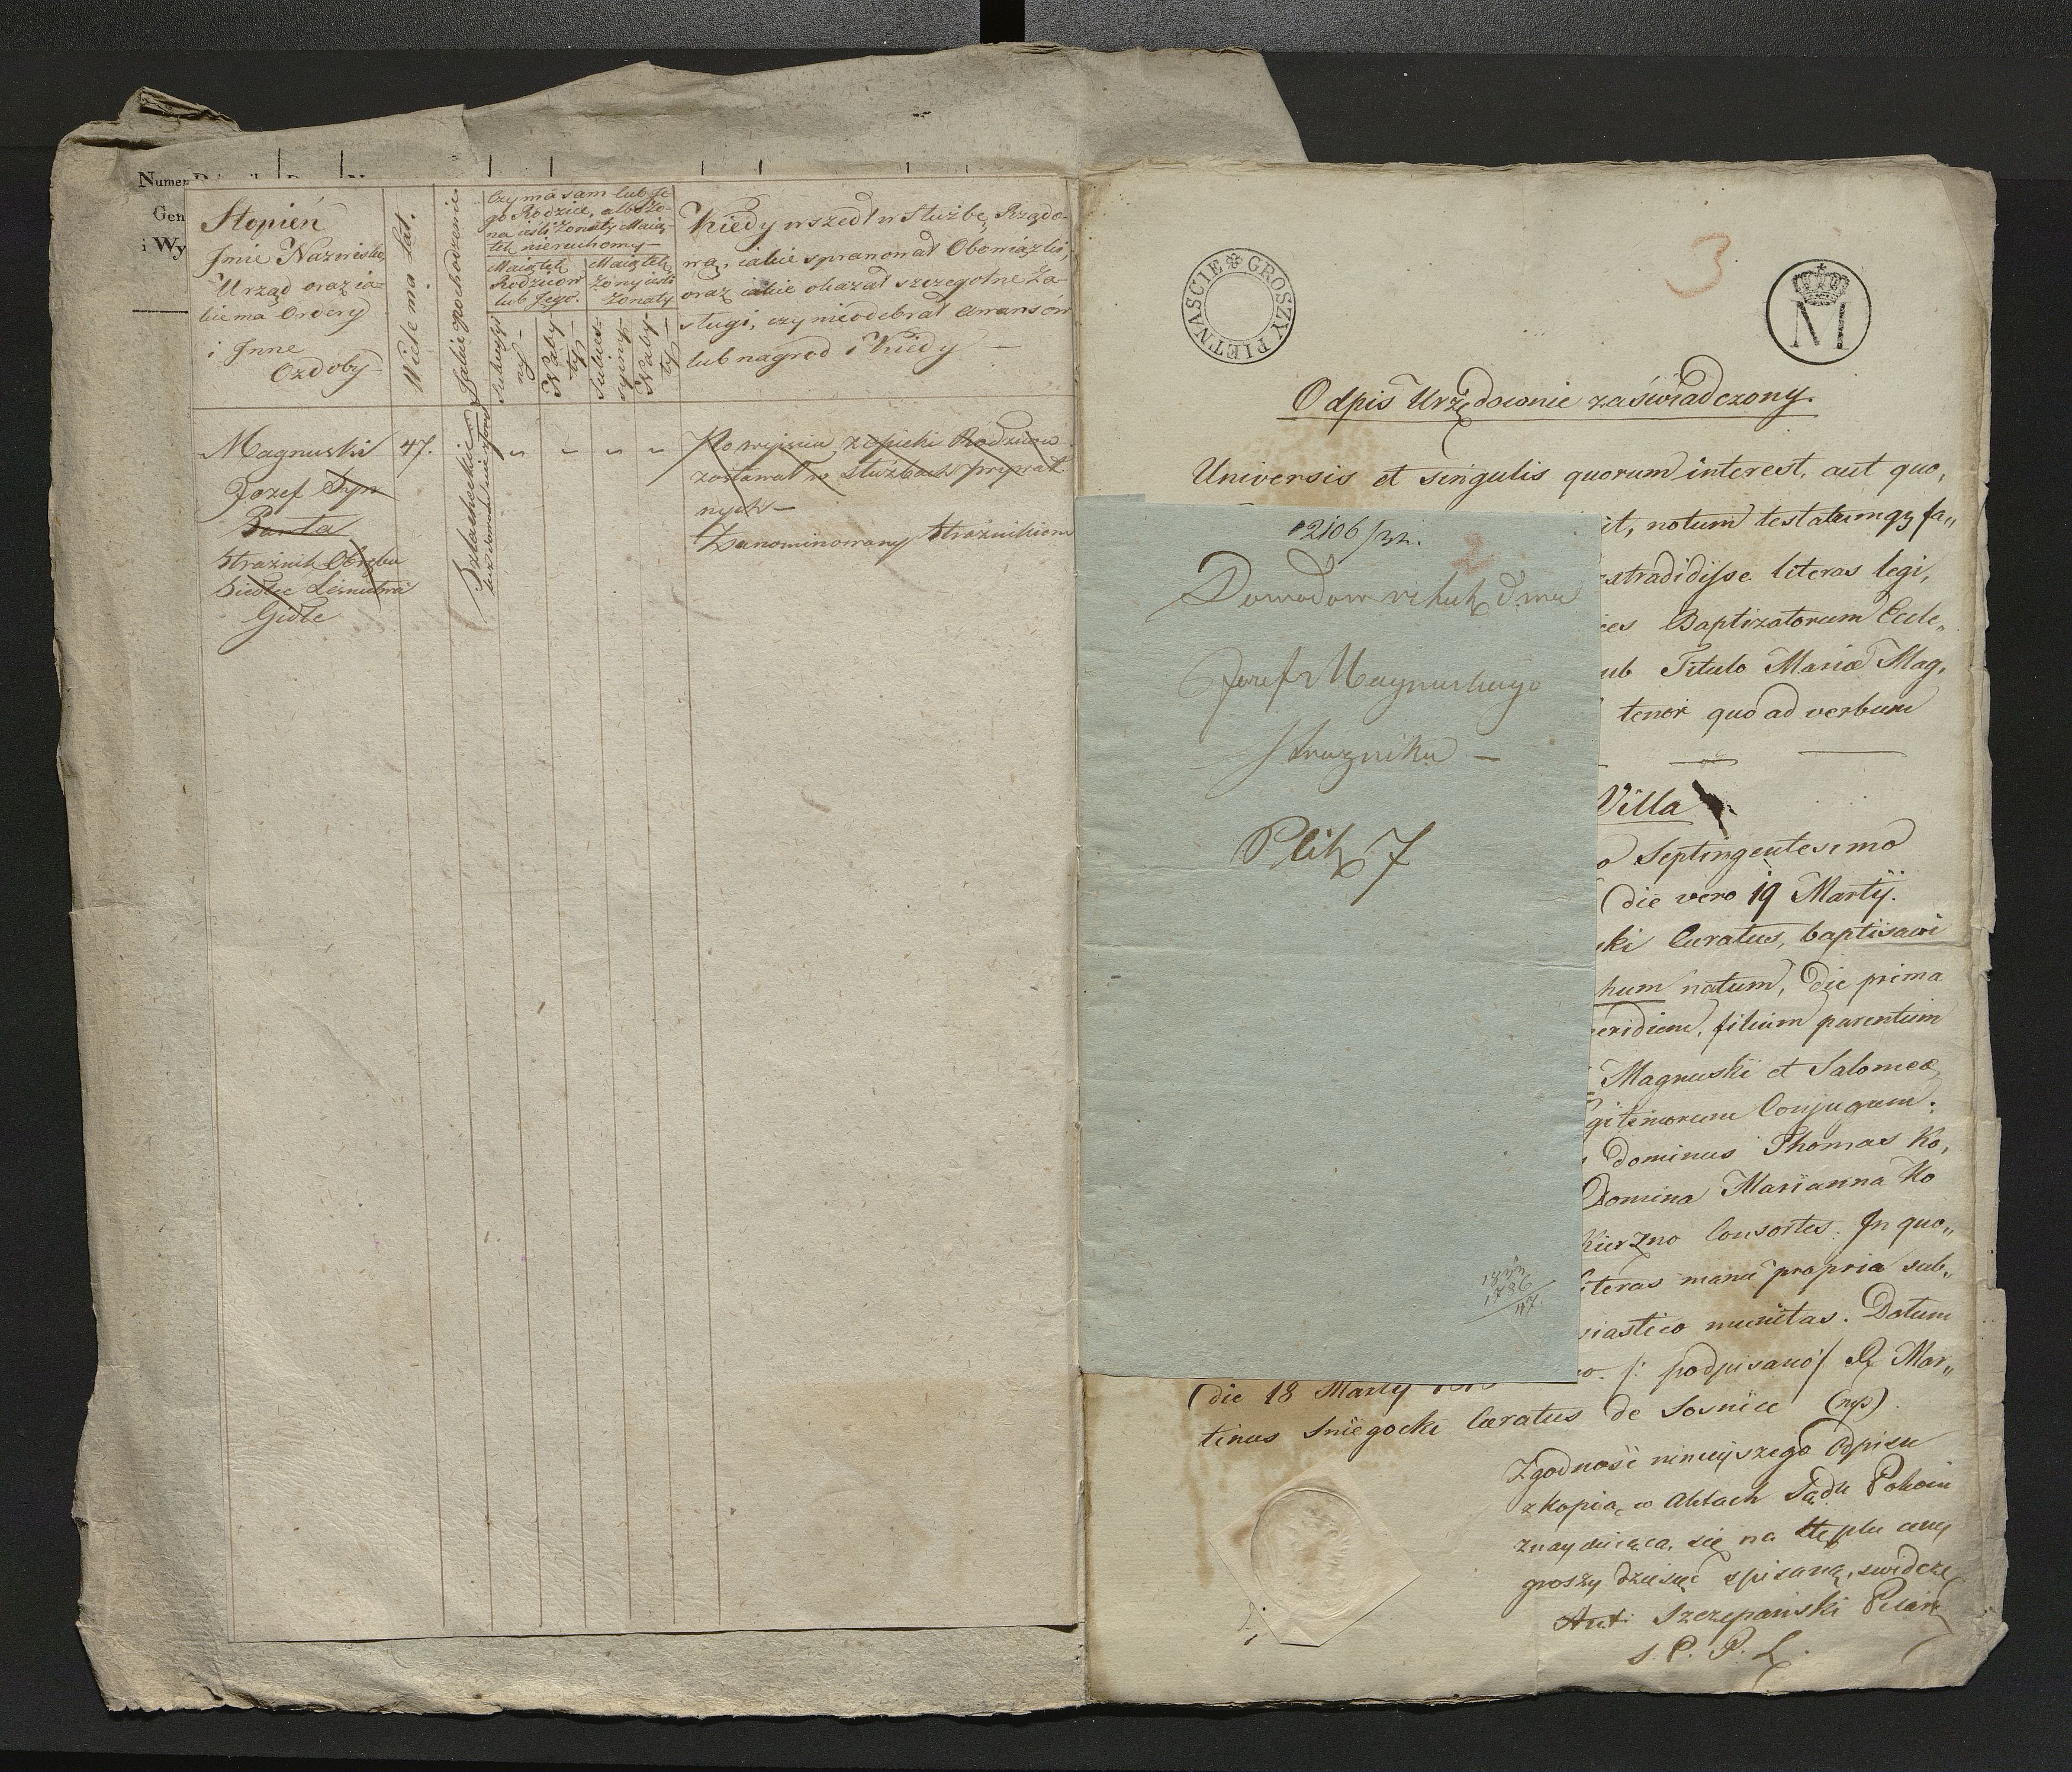 Numer
Gen
i Wy
Stopień
Jmie Nazwisko,
Urząd oraz ia-
kie ma Ordery
i Jnne
Ozdoby
Wiele ma lat.
Jakie pochodzenie
Czy ma sam lub Je-
go Rodzice, albo żo-
na ieśli żonaty Maią-
tek nieruchomy
Maiątek
Rodziców
lub Jego.
Maiątek
żony ieśli
żonaty
Sukcessyi-
ny
Naby-
ty
Sukces-
syiny
Naby-
ty
Kiedy wszedł w Służbę Rządo-
wą, iakie sprawował Obowiązki,
oraz iakie okazał szczegolne Za-
sługi, czy nieodebrał awansów
lub nagrod i Kiedy —
Magnuski
Jozef Syn
Strażnik Obrębu
Siedlce Leśnictwa
Gidle
47.
Szlacheckie
Po wyjsciu z opieki Rodziców
zostawał w Służbach prywat-
nych —
Zanominowany Strażnikiem
GROSZY PIETNASCIE
3
M
Odpis Urzędownie zaświadczony.
Universis et singulis quorum interest, aut quo,
it, notum testatumqz fa„
extradidisse literas legi,
Baptizatorum Eccle„
ub Titulo Mariæ Mag,
tenor quo ad verbum
Villa
o Septingentesimo
die vero 19 Martÿ.
ski Curatus, baptisavi
hum natum, die prima
eridiem, filium parentum
Magnuski et Salomeæ
gitimorum Conjugum.
dominus Thomas Ko,
Domina Marianna Ko
Kierzno Consortes. Jn quo„
iteras manu propria sub„
siastico munitas. Datum
die 18 Martÿ
/: podpisano/ Mar„
tinus Sniegocki Curatus de Sosnice (mp)
Zgodność ninieyszego Odpisu
z kopią w Aktach Sądu Pokoiu
znayduiącą się na stęplu ceny
groszy dziesięć spisaną, swiadczę
Szczepański Pisarz
S. P. P. L.
2106/32.
2
Jozefa Magnuskiego
Strażnika —
Plik 7
1786
47.